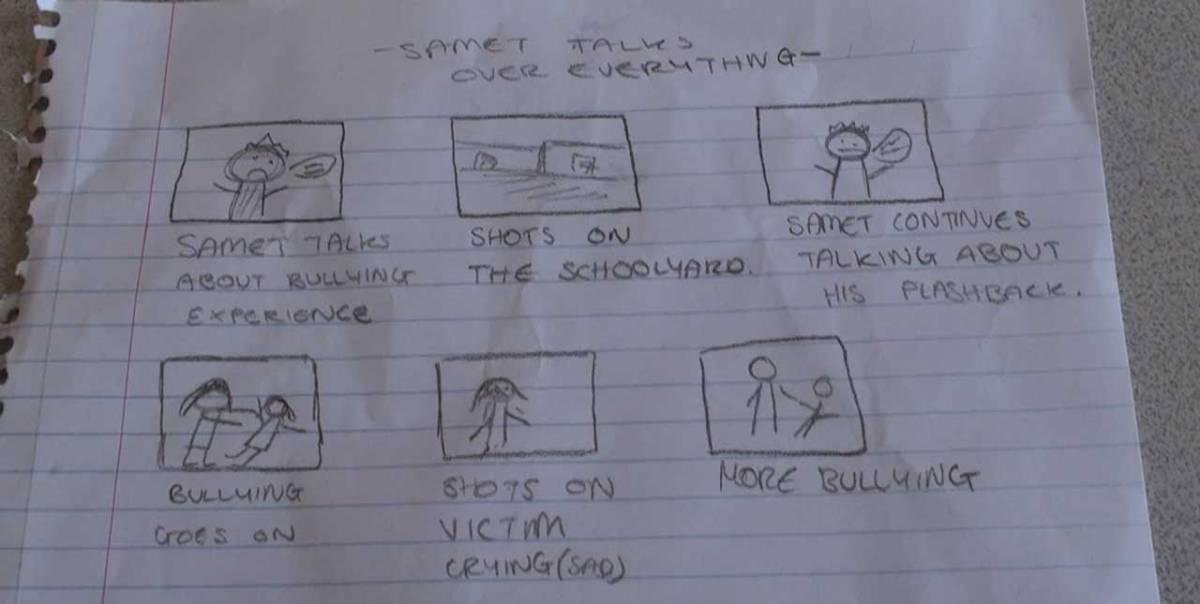 -SAMET TALKS
OVER EVERYTHNG-
SAMET TALKS
ABOUT BULLYING
EXPERIENCE
SHOTS ON
THE SCHOOLYARD.
SAMET CONTINUES
TALKING ABOUT
HIS FLASHBACK.
BULLYING
GOES ON
SHOTS ON
VICTIM
CRYING(SAD)
MORE BULLYING